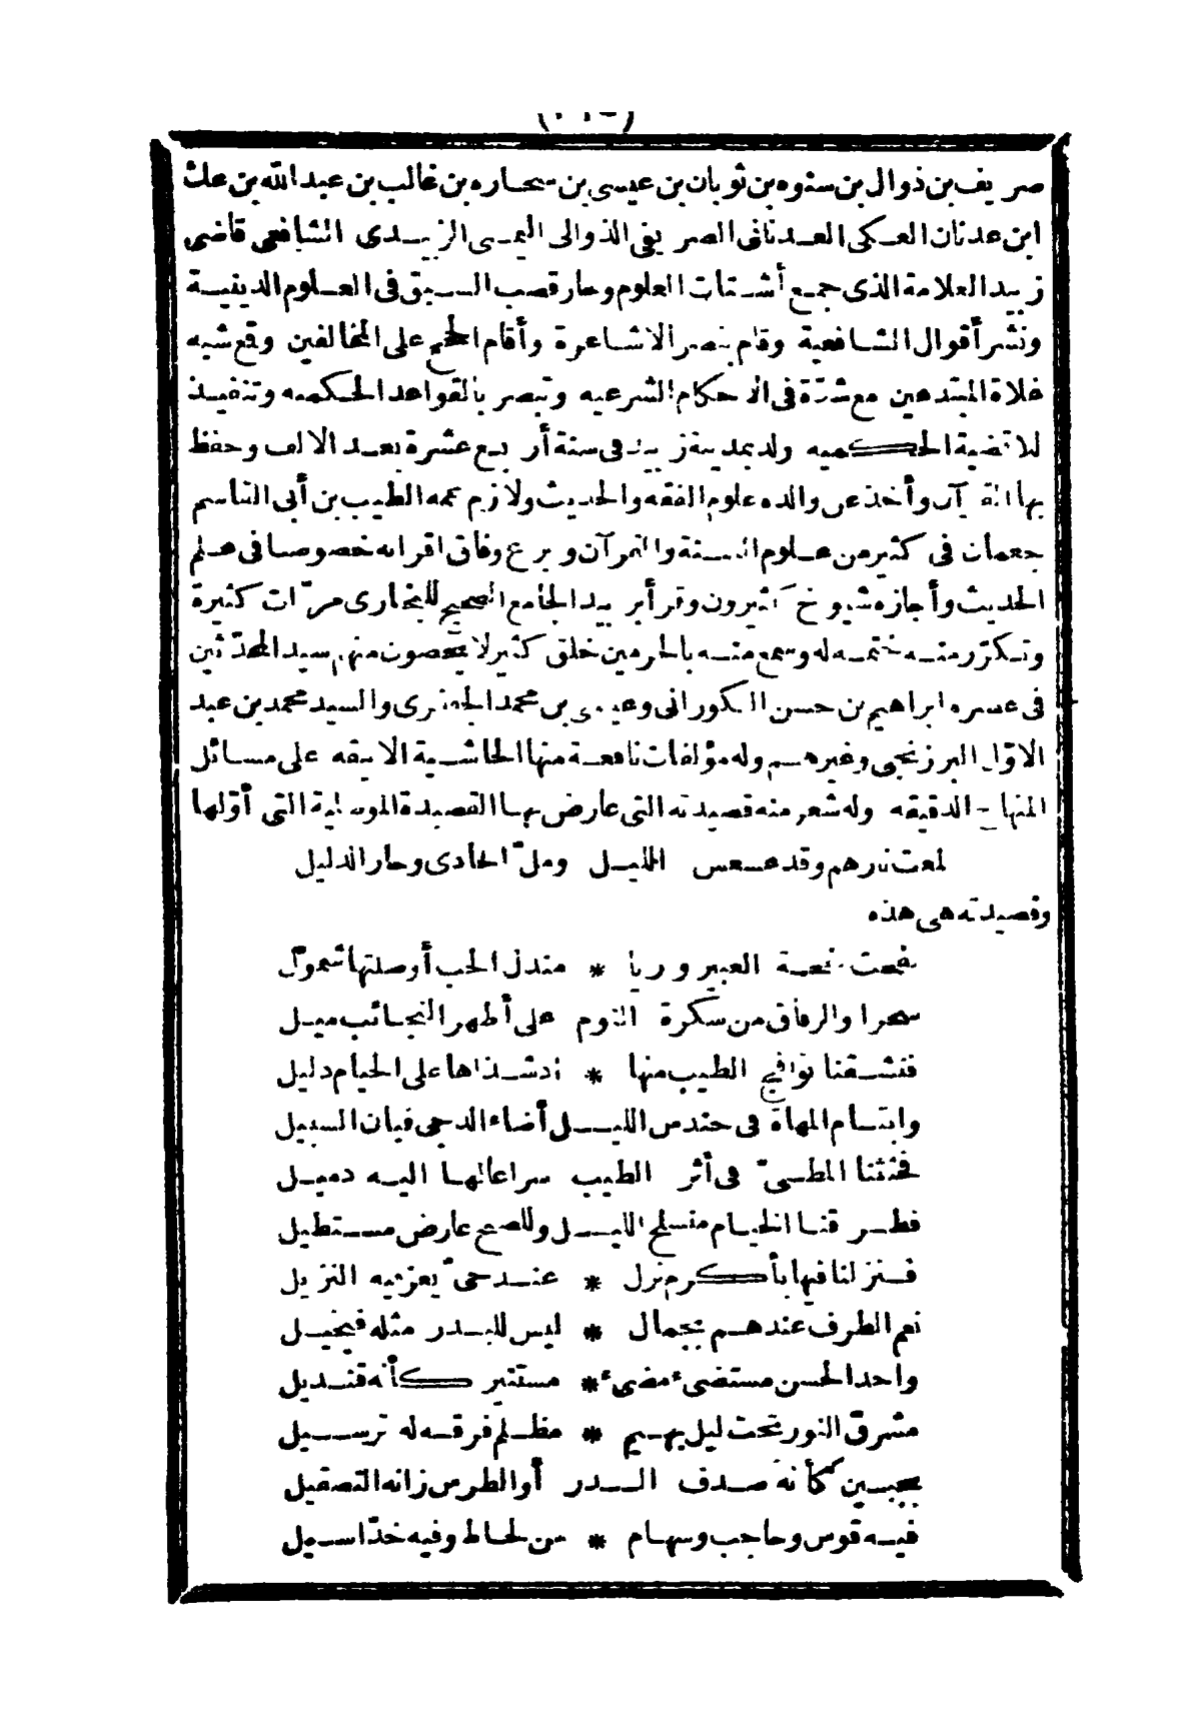 صريف بن ذوال بن سنوه بن ثوبان بن عيسى بن سحاره بن غالب بن عبد الله بن عك
ابن عدنان العكى العدنانى الصريفى الذوالى اليمنى الزبيدى الشافعى قاضى
زبيد العلامة الذى جمع أشتات العلوم وحاز قصب السبق فى العلوم الدينية
ونشر أقوال الشافعية وقام بنصر الاشاعرة وأقام الحجج على المخالفين وقمع شبه
غلاة المبتدعين مع شدّة فى الاحكام الشرعيه وتبصر بالقواعد الحكميه وتنفيذ
للاقضية الحكميه ولد بمدينة زبيد فى سنة أربع عشرة بعد الالف وحفظ
بها القرآن وأخذ عن والده علوم الفقه والحديث ولازم عمه الطيب بن أبى القاسم
جعمان فى كثير من علوم السنة والقرآن وبرع وفاق اقرانه خصوصا فى علم
الحديث وأجازه شيوخ كثيرون وقرأ بزبيد الجامع الصحيح للبخارى مرّات كثيرة
وتكرّر منه ختمه له وسمع منه بالحرمين خلق كثير لا يحصون منهم سيد المحدّثين
فى عصره ابراهيم بن حسن الكورانى وعيسى بن محمد الجعفرى والسيد محمد بن عبد
الاوّل البرزنجى وغيرهم وله مؤلفات نافعة منها الحاشية الانيقه على مسائل
المنهاج الدقيقه وله شعر منه قصيدته التى عارض بها القصيدة الموصلية التى أوّلها
لمعت نارهم وقد عسعس الليل وملّ الحادى وحار الدليل
وقصيدته هى هذه
نفحت نفحة العبير وريا * مندل الحب أوصلتها شمول
سحرا والرفاق من سكرة النوم على أظهر النجائب ميل
فنشقنا نوافج الطيب منها * اذ شذاها على الخيام دليل
وابتسام المهاة فى حندس الليل أضاء الدجى فبان السبيل
فحثثنا المطىّ فى أثر الطيب سراعا لها اليه ذميل
فطرقنا الخيام منسلخ الليل وللصبح عارض مستطيل
فنزلنا فيها بأكرم نزل * عند حىّ يعز فيه النزيل
نعم الطرف عندهم بجمال * ليس للبدر مثله فيخيل
واحد الحسن مستضىء مضىء * مستنير كأنه قنديل
مشرق النور تحت ليل بهيم * مظلم فرقه له ترسيل
بجبين كأنه صدف الدر أو الطرس زانه التصقيل
فيه قوس وحاجب وسهام * من لحاظ وفيه خدّ اسيل